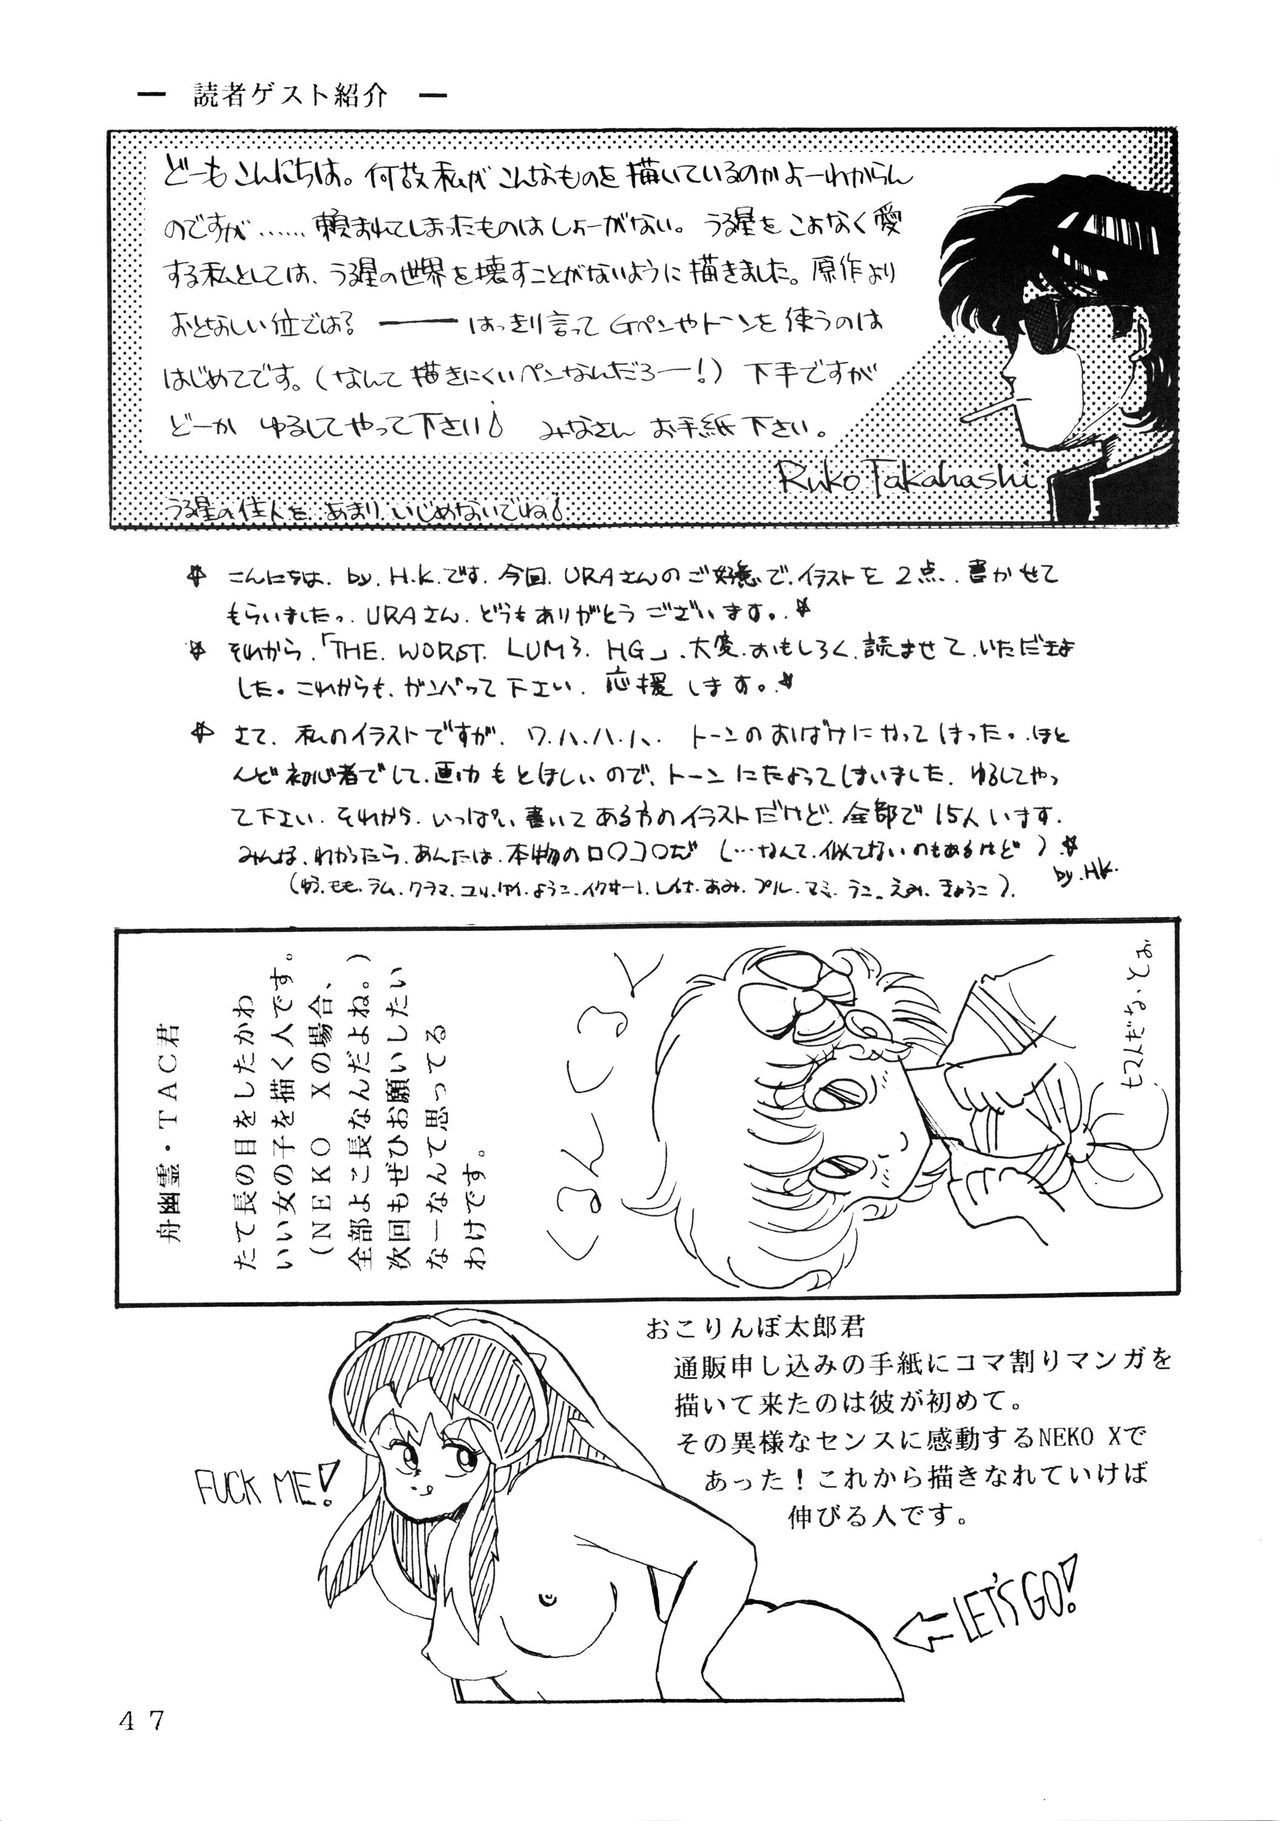 ― 読者ゲスト紹介 ―
どーもこんにちは。何故私がこんなものを描いているのかよーわからん
のですが……頼まれてしまったものはしょーがない。うる星をこよなく愛
する私としては、うる星の世界を壊すことがないように描きました。原作より
おとなしい位では？ ――はっきり言ってGペンやトーンを使うのは
はじめてです。(なんて描きにくいペンなんだろー!) 下手ですが
どーか ゆるしてやって下さい! みなさん お手紙下さい。
Ruko Takahashi
うる星の住人を あまり いじめないでね!
☆ こんにちは、by. H.K.です。今回、URAさんのご好意で、イラストを2点、書かせて
もらいましたっ。URAさん、どうもありがとうございます。☆
☆ それから、「THE WORST LUMよ HG」、大変、おもしろく、読ませて、いただきま
した。これからも、ガンバって下さい、応援します。☆
☆ さて、私のイラストですが、ワ、ハ、ハ、ハ、トーンのおばけにやってはった。ほと
んど初心者でして、画力もとぼしいので、トーンにたよってしまいました。ゆるしてやっ
て下さい。それから、いっぱい書いてある方のイラストだけど、全部で15人います。
みんな、わかったら、あんたは、本物のロ〇コ〇だ (…なんて、似てないのもあるけど) ☆
by. H.K.
(ゆう、モモ、ラム、クラマ、ユリ、ケイ、ようこ、イクサー1、レイナ、あみ、プル、マミ、ラニ、えみ、きょうこ)
舟幽霊・TAC君
たて長の目をしたかわ
いい女の子を描く人です。
(NEKO Xの場合、
全部よこ長なんだよね。)
次回もぜひお願いしたい
なーなんて思ってる
わけです。
くるんくるん
ヒマんだな、とお
おこりんぼ太郎君
通販申し込みの手紙にコマ割りマンガを
描いて来たのは彼が初めて。
その異様なセンスに感動するNEKO Xで
あった！これから描きなれていけば
伸びる人です。
FUCK ME!
LET'S GO!
47